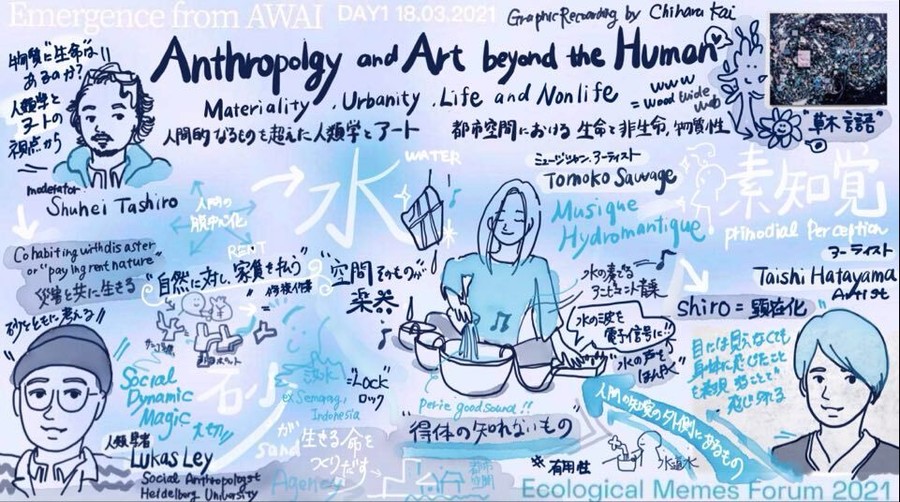 Emergence from AWAI DAY1 18.03.2021 Graphic Recording by Chihara Kai
Anthropolgy and Art beyond the Human
Materiality . Urbanity . Life and Nonlife
人間的なるものを超えた人類学とアート 都市空間における 生命と非生命, 物質性
WWW
= wood wide web
"草木言語"
物質に"生命"は
あるのか?
人類学と
アートの
視点から
moderator
Shuhei Tashiro
水
WATER
ミュージシャン, アーティスト
Tomoko Sauvage
Musique
Hydromantique
素知覚
primodial perception
アーティスト
Taishi Hatayama
Artist
shiro = 顕在化
Cohabiting with disaster
or "paying rent nature"
災害と共に生きる
RENT
"自然に対し、家賃を払う"
"空間そのものが
楽器
砂とともに考える
水の波を
電子信号に!!
"水の声を
目には見えなくても
身体に感じたこと
を表現
Social
Dynamic
Magic
大切
人類学者
Lukas Ley
Social Anthropologst
Heidelberg University
砂
が
sand
ex Semarang,
Indonesia
="LOCK"
ロック
生きる命を
つくりだす
Agency
good sound!!
"得体の知れないもの"
※有用性
水道水
人間の知覚の外側にあるもの
Ecological Memes Forum 2021